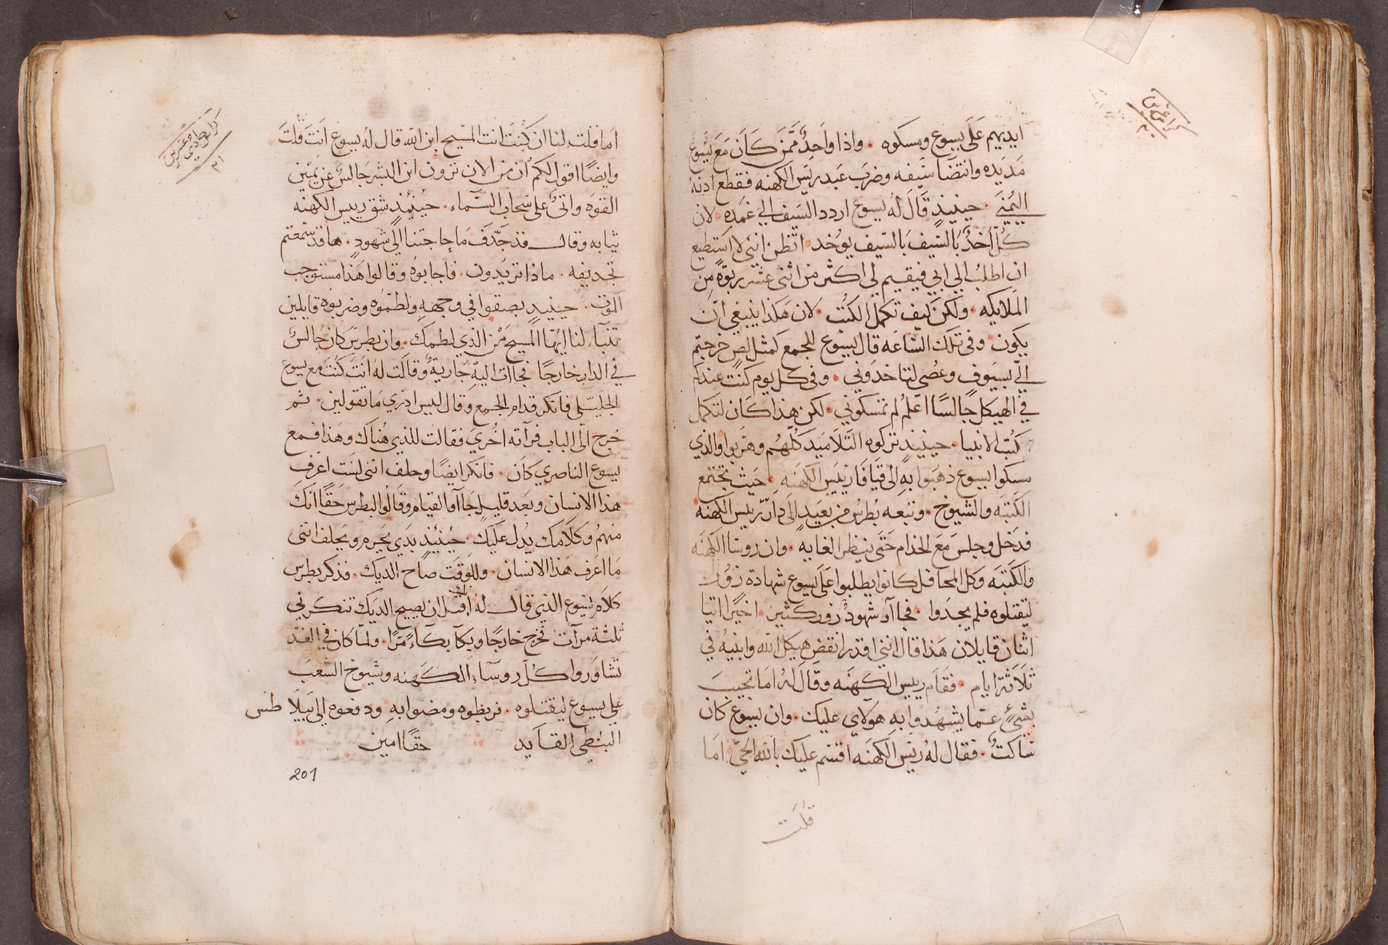 ايديهم عَلَى يسوع ومسكوه • واذا وَاحِدٌ مِّمَّن كَانَ مَعَ يَسُوع
مَدَ يَده وانتضَا سَيفه وضرَبَ عَبد ريَس الكهنه فقطع ادنهُ
اليُمنَى • حينيذٍ قَالَ لهُ يسوع اردد السَيف الي غمَده • لان
كُل اَخذٌ بَالسَيف بَالسَيف يوُخد • اتظن انني لا استَطيع
ان اطلبُ الي ابي فيقيم لي اكثر من اثنى عشر ربوةً من
الملايكه • ولكن كيف تكمل الكتُب • لان هَكذا ينبغي اَن
يكون • وفي تلك السَاعه قال يسوع للجمع كمثل لص خرجتم
اليّ بسيوف وعصي لتاخدوني • وفي كل يوم كنتُ عندكم
في الهيكل جَالسًا اعلم لم تمسكوني • لكن هذا كان لتكمل
كتُب الانبيا • حينيذٍ تركوه التلاميد كلهم وهَربوا والذي
مسكوا يسوع ذهَبَوا بهِ الى قيافا ريَيس الكهنه • حيث تجتمع
الكَتبَه والشيوخ • وتبعه بُطرس من بعَيدٍ الَى دَار ريَيس الكهنَه
فدخل وجلسَ مَع الخدام حتى ينظر الغايه • وان روسَا الكهنَه
والكتبَه وكل المحَافل كانوا يطلبوا علَى يسوع شهادة زُورٍ
ليَقتلوه فلم يجدوا • فجاآو شهودُ زور كثير • اخيرًا اتيا
اثنان قايلان هَذا قال انني اقدر انقض هيكل الله وابنيهُ في
ثلاثة ايام • فقام رييس الكهنَه وقَال لهُ امَا تجيبَ
بشيءٍ عمّا يشهدوا بهِ هولاي عليك • وان يسوع كان
سَاكتٌ • فقال له رييس الكهنَه اقسَم عليك بالله الحيّ امَا
قلت
اما قلت لنا ان كنُتَ انت المَسيح ابن الله قال لهُ يسوع انتَ قلتَ
وايضًا اقول لكم ان من الان ترون ابن البشر جالسٌ عن يَمين
القوه واتيٌ على سحاب السَماء • حينيذٍ شق رييس الكهنَه
ثيابه وقال قد جَدّفَ ما حاجتنا الي شهودٍ • ها قد سمعتم
تجديفه • ماذا تريدون • فاجابوُه وقالوا هَذا مستوجب
الموت • حينيذٍ بصقوا في وجههِ ولطمَوُه وضربوه قايلين
تنَباء لنا ايهَا المسيح مَن الذي لطمك • وان بطرس كان جالسٌ
في الدار خارجًا فجاآت اليهِ جاريةٌ وقالت له انت كنت مع يسوع
الجليلي فانكر قدام الجمع وقال ليس ادري ما تقولين • ثم
خرج الى الباب فرآته اُخرَي فقالت للذي هُناك وهَذا فمع
يسوع الناصري كان • فانكر ايضًا وحلف انني لست اعرف
هذا الانسان وبعد قليل جاآوا القيام وقالوا لبطرس حقًا انك
منهم وكلامك يدُل عليك • حينيذٍ بدي يحرم ويحلف انني
مَا اعرف هَذا الانسان • وللوقت صاح الديك • فذكر بطرس
كلام يسوع الذي قال له اقبل ان يصيح الديك تنكرني
ثلثه مرات فخرج خارجًا وبكا بكاءً مرًا • ولما كان في الغد
تشاوروا كل روساء الكهنه وشيوخ الشعب
علي يسوع ليقتلوه • فربطوه ومضوا بهِ ودفعوه الي بيلاطس
البنطي القايد حقًا امين
201